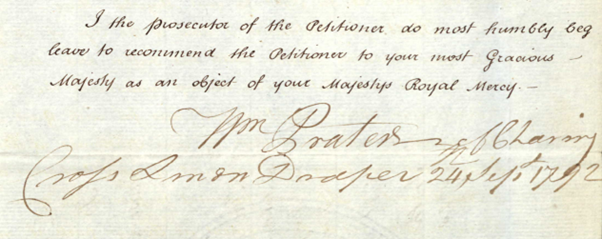 I the prosecutor of the Petitioner do most humbly beg
leave to recommend the Petitioner to your most Gracious –
Majesty as an object of your Majestys Royal Mercy. –
Wm Prater of Charing
Croſs Linen Draper 24 Sept 1792